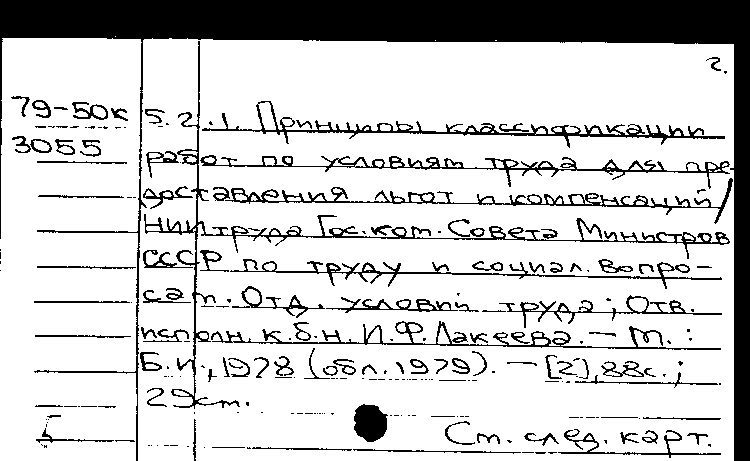 2.
79-50к 5.2.1. Принципы классификации
3055
работ по условиям труда для пре-
доставления льгот и компенсаций/
НИИтруда Гос.ком. Совета Министров
СССР по труду и социал. вопро-
сам. Отд. условий труда; Отв.
исполн. к.б.н. И.Ф. Лакеева. — М.:
Б.и., 1978 (обл. 1979). — [2], 88с.;
29см.
См. след. карт.